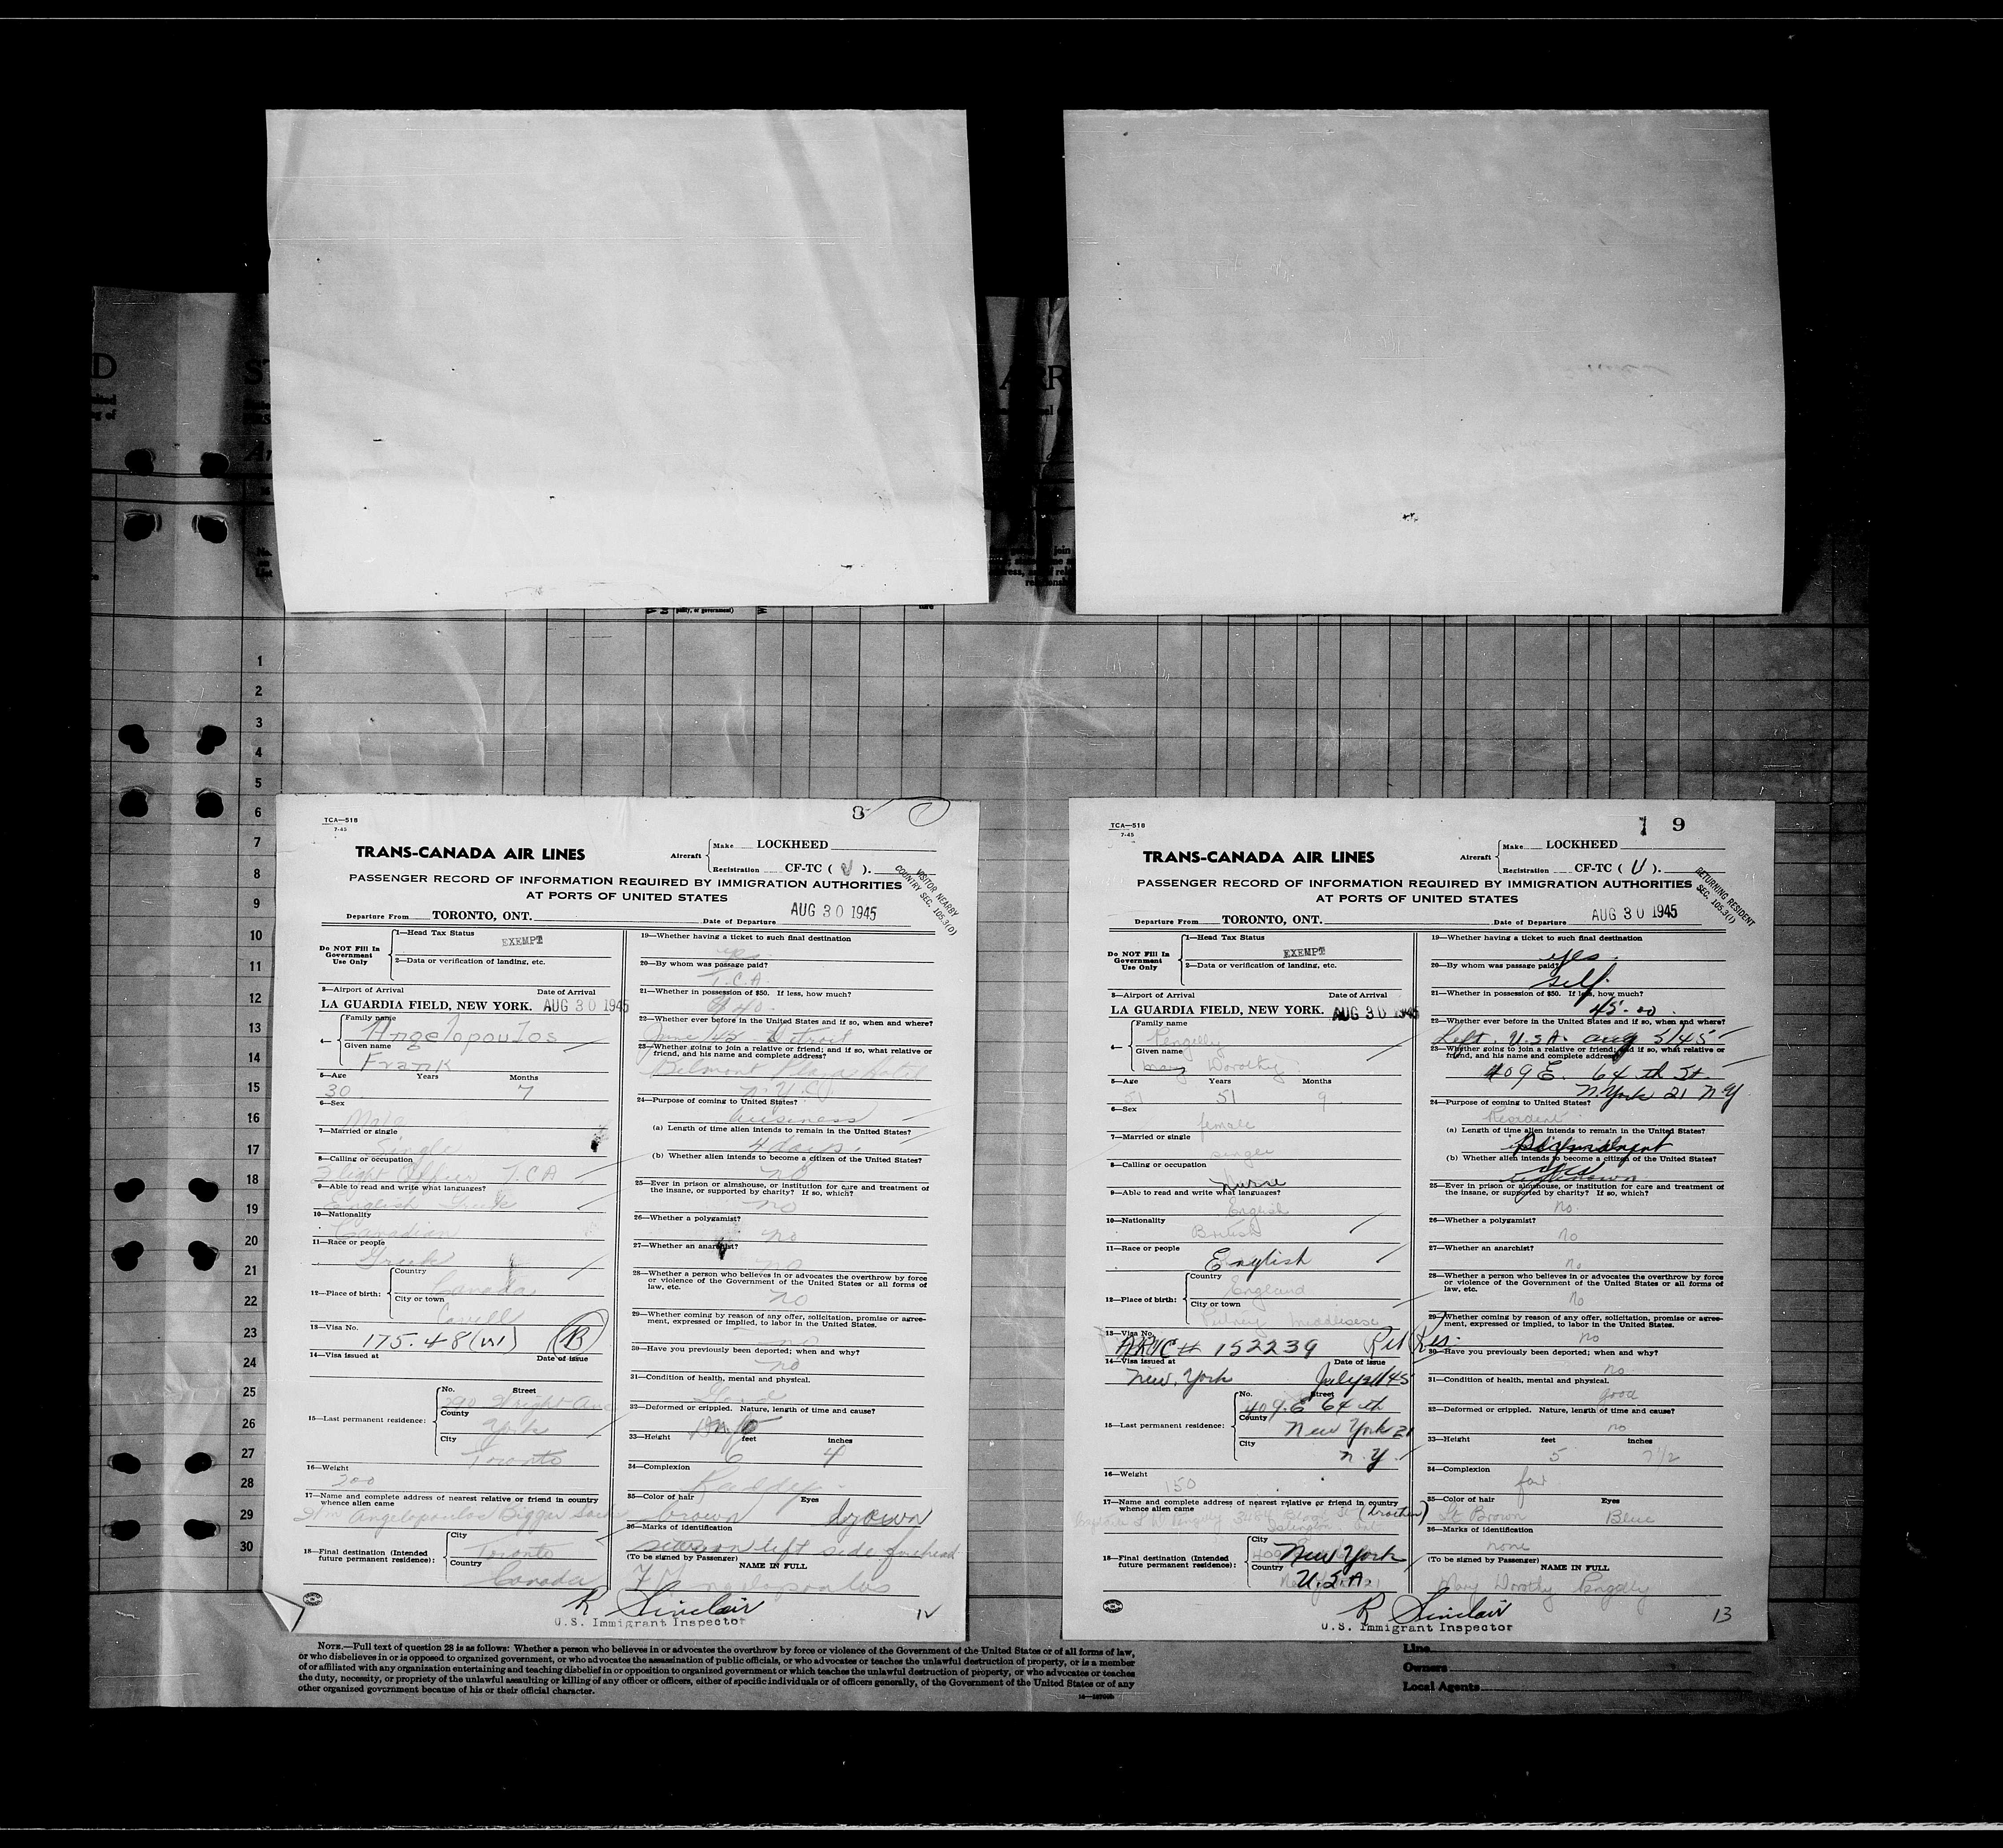 D
ST
ARR
1
2
3
4
5
6
7
8
9
10
11
12
13
14
15
16
17
18
19
20
21
22
23
24
25
26
27
28
29
30
TCA—518
7-45
8
TRANS-CANADA AIR LINES
Aircraft
Make LOCKHEED
Registration CF-TC ( U ).
VISITOR NEARBY
COUNTRY SEC. 105.3(D)
PASSENGER RECORD OF INFORMATION REQUIRED BY IMMIGRATION AUTHORITIES
AT PORTS OF UNITED STATES
Departure From TORONTO, ONT. Date of Departure AUG 30 1945
Do NOT Fill In Government Use Only
1—Head Tax Status EXEMPT
2—Data or verification of landing, etc.
3—Airport of Arrival Date of Arrival
LA GUARDIA FIELD, NEW YORK. AUG 30 1945
4— Family name Angelopoulos
Given name Frank
5—Age Years Months
30 7
6—Sex
Male
7—Married or single
Single
8—Calling or occupation
Flight Officer T.C.A
9—Able to read and write what languages?
English
10—Nationality
Canadian
11—Race or people
Greek
12—Place of birth: Country
Canada
City or town
13—Visa No.
175.48 (b1) B
14—Visa issued at Date of issue
15—Last permanent residence: No. Street
290 Wright Ave
County
York
City
Toronto
16—Weight
200
17—Name and complete address of nearest relative or friend in country whence alien came
Angelopoulos Biggar Sask
18—Final destination (Intended future permanent residence): City
Toronto
Country
Canada
19—Whether having a ticket to such final destination
yes
20—By whom was passage paid?
T.C.A.
21—Whether in possession of $50. If less, how much?
$40.
22—Whether ever before in the United States and if so, when and where?
June /45 Detroit
23—Whether going to join a relative or friend; and if so, what relative or friend, and his name and complete address?
Belmont Plaza Hotel
N.Y.C.
24—Purpose of coming to United States?
business
(a) Length of time alien intends to remain in the United States?
4 days.
(b) Whether alien intends to become a citizen of the United States?
no
25—Ever in prison or almshouse, or institution for care and treatment of the insane, or supported by charity? If so, which?
no
26—Whether a polygamist?
no
27—Whether an anarchist?
no
28—Whether a person who believes in or advocates the overthrow by force or violence of the Government of the United States or all forms of law, etc.
no
29—Whether coming by reason of any offer, solicitation, promise or agreement, expressed or implied, to labor in the United States.
no
30—Have you previously been deported; when and why?
no
31—Condition of health, mental and physical.
Good
32—Deformed or crippled. Nature, length of time and cause?
no
33—Height feet inches
6 4
34—Complexion
Ruddy
35—Color of hair Eyes
brown brown
36—Marks of identification
scar on left side forehead
(To be signed by Passenger) NAME IN FULL
F Angelopoulos
R Sinclair
U.S. Immigrant Inspector
12
TCA—518
7-45
9
TRANS-CANADA AIR LINES
Aircraft
Make LOCKHEED
Registration CF-TC ( U ).
RETURNING RESIDENT
SEC. 105.3(1)
PASSENGER RECORD OF INFORMATION REQUIRED BY IMMIGRATION AUTHORITIES
AT PORTS OF UNITED STATES
Departure From TORONTO, ONT. Date of Departure AUG 30 1945
Do NOT Fill In Government Use Only
1—Head Tax Status EXEMPT
2—Data or verification of landing, etc.
3—Airport of Arrival Date of Arrival
LA GUARDIA FIELD, NEW YORK. AUG 30 1945
4— Family name
Pengelly
Given name
Mary Dorothy
5—Age Years Months
51 51 9
6—Sex
female
7—Married or single
single
8—Calling or occupation
Nurse
9—Able to read and write what languages?
English
10—Nationality
British
11—Race or people
English
12—Place of birth: Country
England
City or town
Putney Middlesex
13—Visa No.
# 152239 Ret Res.
14—Visa issued at Date of issue
New York July 21/45
15—Last permanent residence: No. Street
409 E 64 th
County
New York 21
City
N.Y.
16—Weight
150
17—Name and complete address of nearest relative or friend in country whence alien came
Pengelly Bloor St (brother)
Islington Ont
18—Final destination (Intended future permanent residence): City
New York
Country
U.S.A.
19—Whether having a ticket to such final destination
yes.
20—By whom was passage paid?
self.
21—Whether in possession of $50. If less, how much?
45.00.
22—Whether ever before in the United States and if so, when and where?
Left U.S.A. Aug 5/45
23—Whether going to join a relative or friend; and if so, what relative or friend, and his name and complete address?
409 E. 64 th St.
N. York 21 N.Y.
24—Purpose of coming to United States?
Resident
(a) Length of time alien intends to remain in the United States?
Permanent
(b) Whether alien intends to become a citizen of the United States?
25—Ever in prison or almshouse, or institution for care and treatment of the insane, or supported by charity? If so, which?
no.
26—Whether a polygamist?
no
27—Whether an anarchist?
no
28—Whether a person who believes in or advocates the overthrow by force or violence of the Government of the United States or all forms of law, etc.
no
29—Whether coming by reason of any offer, solicitation, promise or agreement, expressed or implied, to labor in the United States.
no
30—Have you previously been deported; when and why?
no
31—Condition of health, mental and physical.
good
32—Deformed or crippled. Nature, length of time and cause?
no
33—Height feet inches
5 7 1/2
34—Complexion
fair
35—Color of hair Eyes
Lt Brown Blue
36—Marks of identification
none
(To be signed by Passenger) NAME IN FULL
Mary Dorothy Pengelly
R Sinclair
U.S. Immigrant Inspector
13
NOTE.—Full text of question 28 is as follows: Whether a person who believes in or advocates the overthrow by force or violence of the Government of the United States or of all forms of law,
or who disbelieves in or is opposed to organized government, or who advocates the assassination of public officials, or who advocates or teaches the unlawful destruction of property, or is a member
of or affiliated with any organization entertaining and teaching disbelief in or opposition to organized government or which teaches the unlawful destruction of property, or who advocates or teaches
the duty, necessity, or propriety of the unlawful assaulting or killing of any officer or officers, either of specific individuals or of officers generally, of the Government of the United States or of any
other organized government because of his or their official character.
Line
Owners
Local Agents